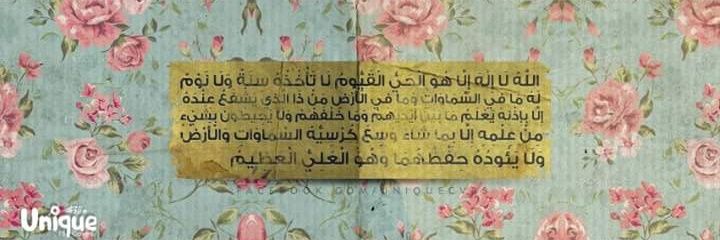 اللّهُ لَا إِلَهَ إِلَّا هُوَ الْحَيُّ الْقَيُّومُ لَا تَأْخُذُهُ سِنَةٌ وَلَا نَوْمٌ
لَهُ مَا فِي السَّمَاوَاتِ وَمَا فِي الْأَرْضِ مَنْ ذَا الَّذِي يَشْفَعُ عِنْدَهُ
إِلَّا بِإِذْنِهِ يَعْلَمُ مَا بَيْنَ أَيْدِيهِمْ وَمَا خَلْفَهُمْ وَلَا يُحِيطُونَ بِشَيْءٍ
مِنْ عِلْمِهِ إِلَّا بِمَا شَاءَ وَسِعَ كُرْسِيُّهُ السَّمَاوَاتِ وَالْأَرْضَ
وَلَا يَئُودُهُ حِفْظُهُمَا وَهُوَ الْعَلِيُّ الْعَظِيمُ
FACEBOOK.COM/UNIQUECVRS
Unique